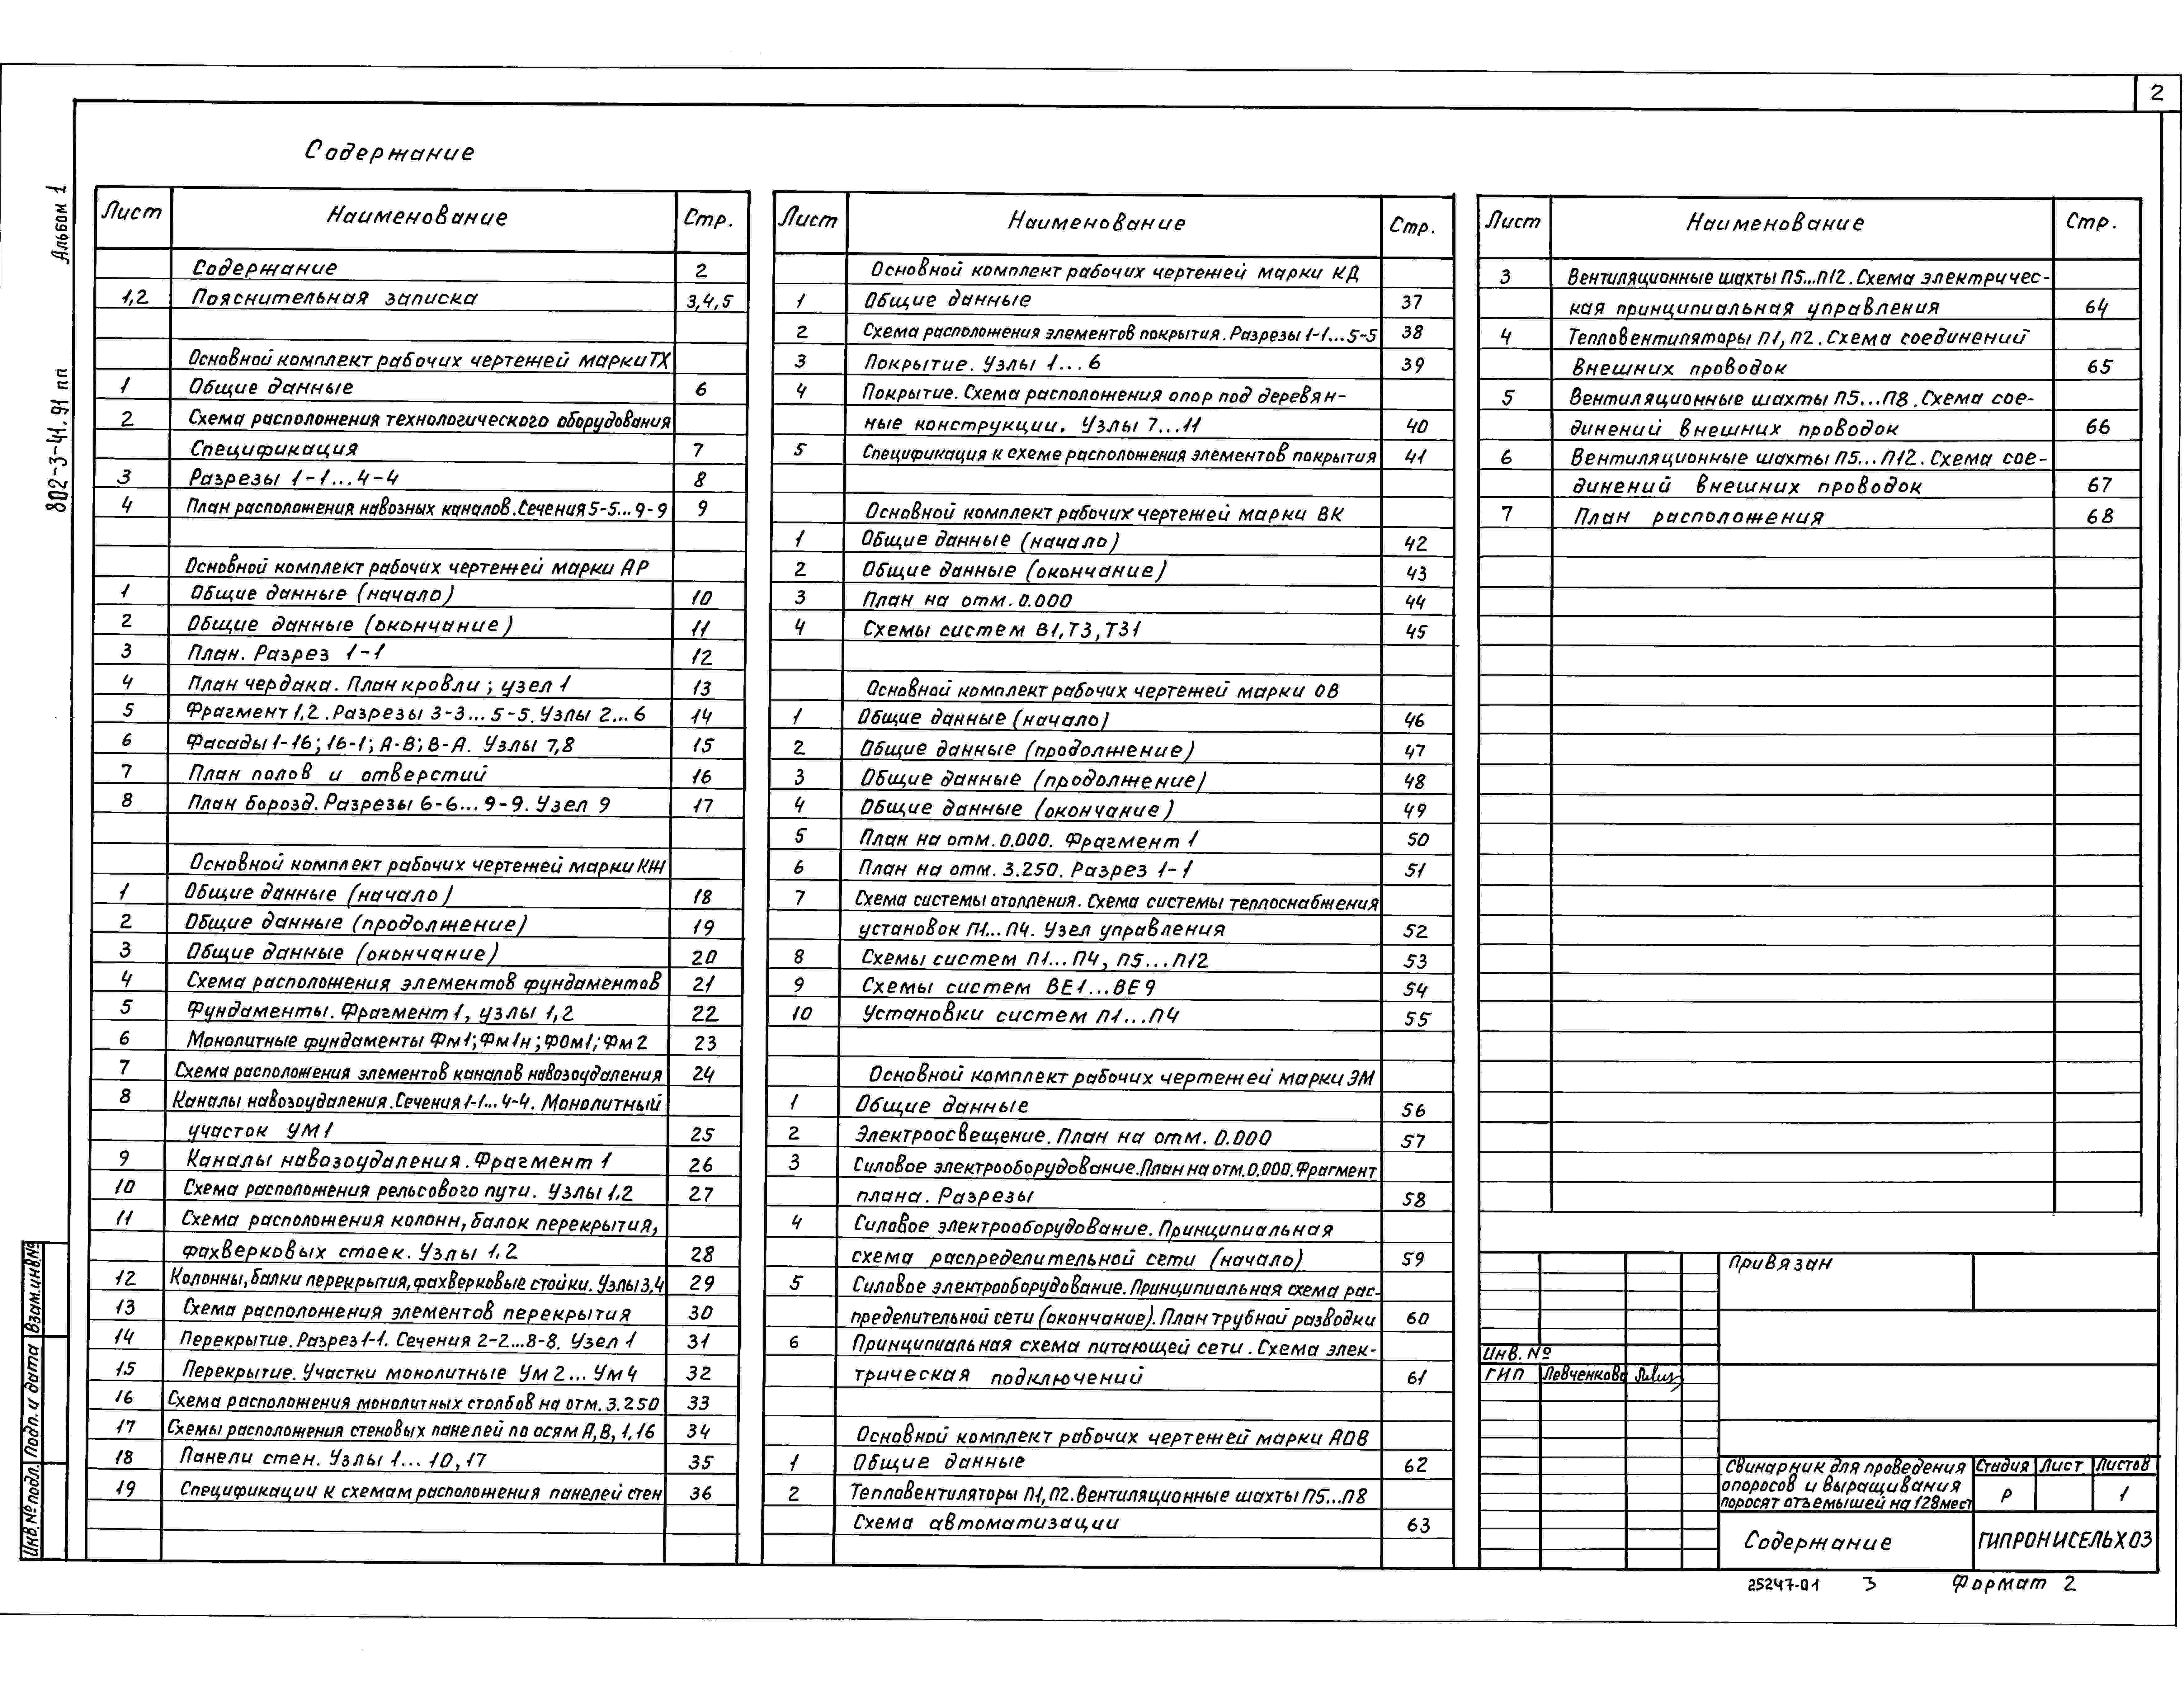 2
Содержание
Альбом 1
802-3-41.91 пп
Лист Наименование Стр.
Содержание 2
1,2 Пояснительная записка 3,4,5
Основной комплект рабочих чертежей марки ТХ
1 Общие данные 6
2 Схема расположения технологического оборудования
Спецификация 7
3 Разрезы 1-1...4-4 8
4 План расположения навозных каналов. Сечения 5-5...9-9 9
Основной комплект рабочих чертежей марки АР
1 Общие данные (начало) 10
2 Общие данные (окончание) 11
3 План. Разрез 1-1 12
4 План чердака. План кровли; узел 1 13
5 Фрагмент 1,2. Разрезы 3-3...5-5. Узлы 2...6 14
6 Фасады 1-16; 16-1; А-В; В-А. Узлы 7,8 15
7 План полов и отверстий 16
8 План борозд. Разрезы 6-6...9-9. Узел 9 17
Основной комплект рабочих чертежей марки КЖ
1 Общие данные (начало) 18
2 Общие данные (продолжение) 19
3 Общие данные (окончание) 20
4 Схема расположения элементов фундаментов 21
5 Фундаменты. Фрагмент 1, узлы 1,2 22
6 Монолитные фундаменты Фм1; Фм1н; ФОм1; Фм2 23
7 Схема расположения элементов каналов навозоудаления 24
8 Каналы навозоудаления. Сечения 1-1...4-4. Монолитный
участок УМ1 25
9 Каналы навозоудаления. Фрагмент 1 26
10 Схема расположения рельсового пути. Узлы 1,2 27
11 Схема расположения колонн, балок перекрытия,
фахверковых стоек. Узлы 1,2 28
12 Колонны, балки перекрытия, фахверковые стойки. Узлы 3,4 29
13 Схема расположения элементов перекрытия 30
14 Перекрытие. Разрез 1-1. Сечения 2-2...8-8. Узел 1 31
15 Перекрытие. Участки монолитные Ум2...Ум4 32
16 Схема расположения монолитных столбов на отм. 3.250 33
17 Схемы расположения стеновых панелей по осям А,В,1,16 34
18 Панели стен. Узлы 1...10,17 35
19 Спецификации к схемам расположения панелей стен 36
Лист Наименование Стр.
Основной комплект рабочих чертежей марки КД
1 Общие данные 37
2 Схема расположения элементов покрытия. Разрезы 1-1...5-5 38
3 Покрытие. Узлы 1...6 39
4 Покрытие. Схема расположения опор под деревян-
ные конструкции. Узлы 7...11 40
5 Спецификация к схеме расположения элементов покрытия 41
Основной комплект рабочих чертежей марки ВК
1 Общие данные (начало) 42
2 Общие данные (окончание) 43
3 План на отм. 0.000 44
4 Схемы систем В1, Т3, Т31 45
Основной комплект рабочих чертежей марки ОВ
1 Общие данные (начало) 46
2 Общие данные (продолжение) 47
3 Общие данные (продолжение) 48
4 Общие данные (окончание) 49
5 План на отм. 0.000. Фрагмент 1 50
6 План на отм. 3.250. Разрез 1-1 51
7 Схема системы отопления. Схема системы теплоснабжения
установок П1...П4. Узел управления 52
8 Схемы систем П1...П4, П5...П12 53
9 Схемы систем ВЕ1...ВЕ9 54
10 Установки систем П1...П4 55
Основной комплект рабочих чертежей марки ЭМ
1 Общие данные 56
2 Электроосвещение. План на отм. 0.000 57
3 Силовое электрооборудование. План на отм. 0.000. Фрагмент
плана. Разрезы 58
4 Силовое электрооборудование. Принципиальная
схема распределительной сети (начало) 59
5 Силовое электрооборудование. Принципиальная схема рас-
пределительной сети (окончание). План трубной разводки 60
6 Принципиальная схема питающей сети. Схема элек-
трическая подключений 61
Основной комплект рабочих чертежей марки АОВ
1 Общие данные 62
2 Тепловентиляторы П1, П2. Вентиляционные шахты П5...П8
Схема автоматизации 63
Лист Наименование Стр.
3 Вентиляционные шахты П5...П12. Схема электричес-
кая принципиальная управления 64
4 Тепловентиляторы П1, П2. Схема соединений
внешних проводок 65
5 Вентиляционные шахты П5...П8. Схема сое-
динений внешних проводок 66
6 Вентиляционные шахты П5...П12. Схема сое-
динений внешних проводок 67
7 План расположения 68
Привязан
Инв. №
ГИП Левченково
Свинарник для проведения
опоросов и выращивания
поросят отъемышей на 128 мест
Стадия Лист Листов
Р 1
Содержание
ГИПРОНИСЕЛЬХОЗ
25247-01 3 Формат 2
Взам. инв. №
Подп. и дата
Инв. № подл.